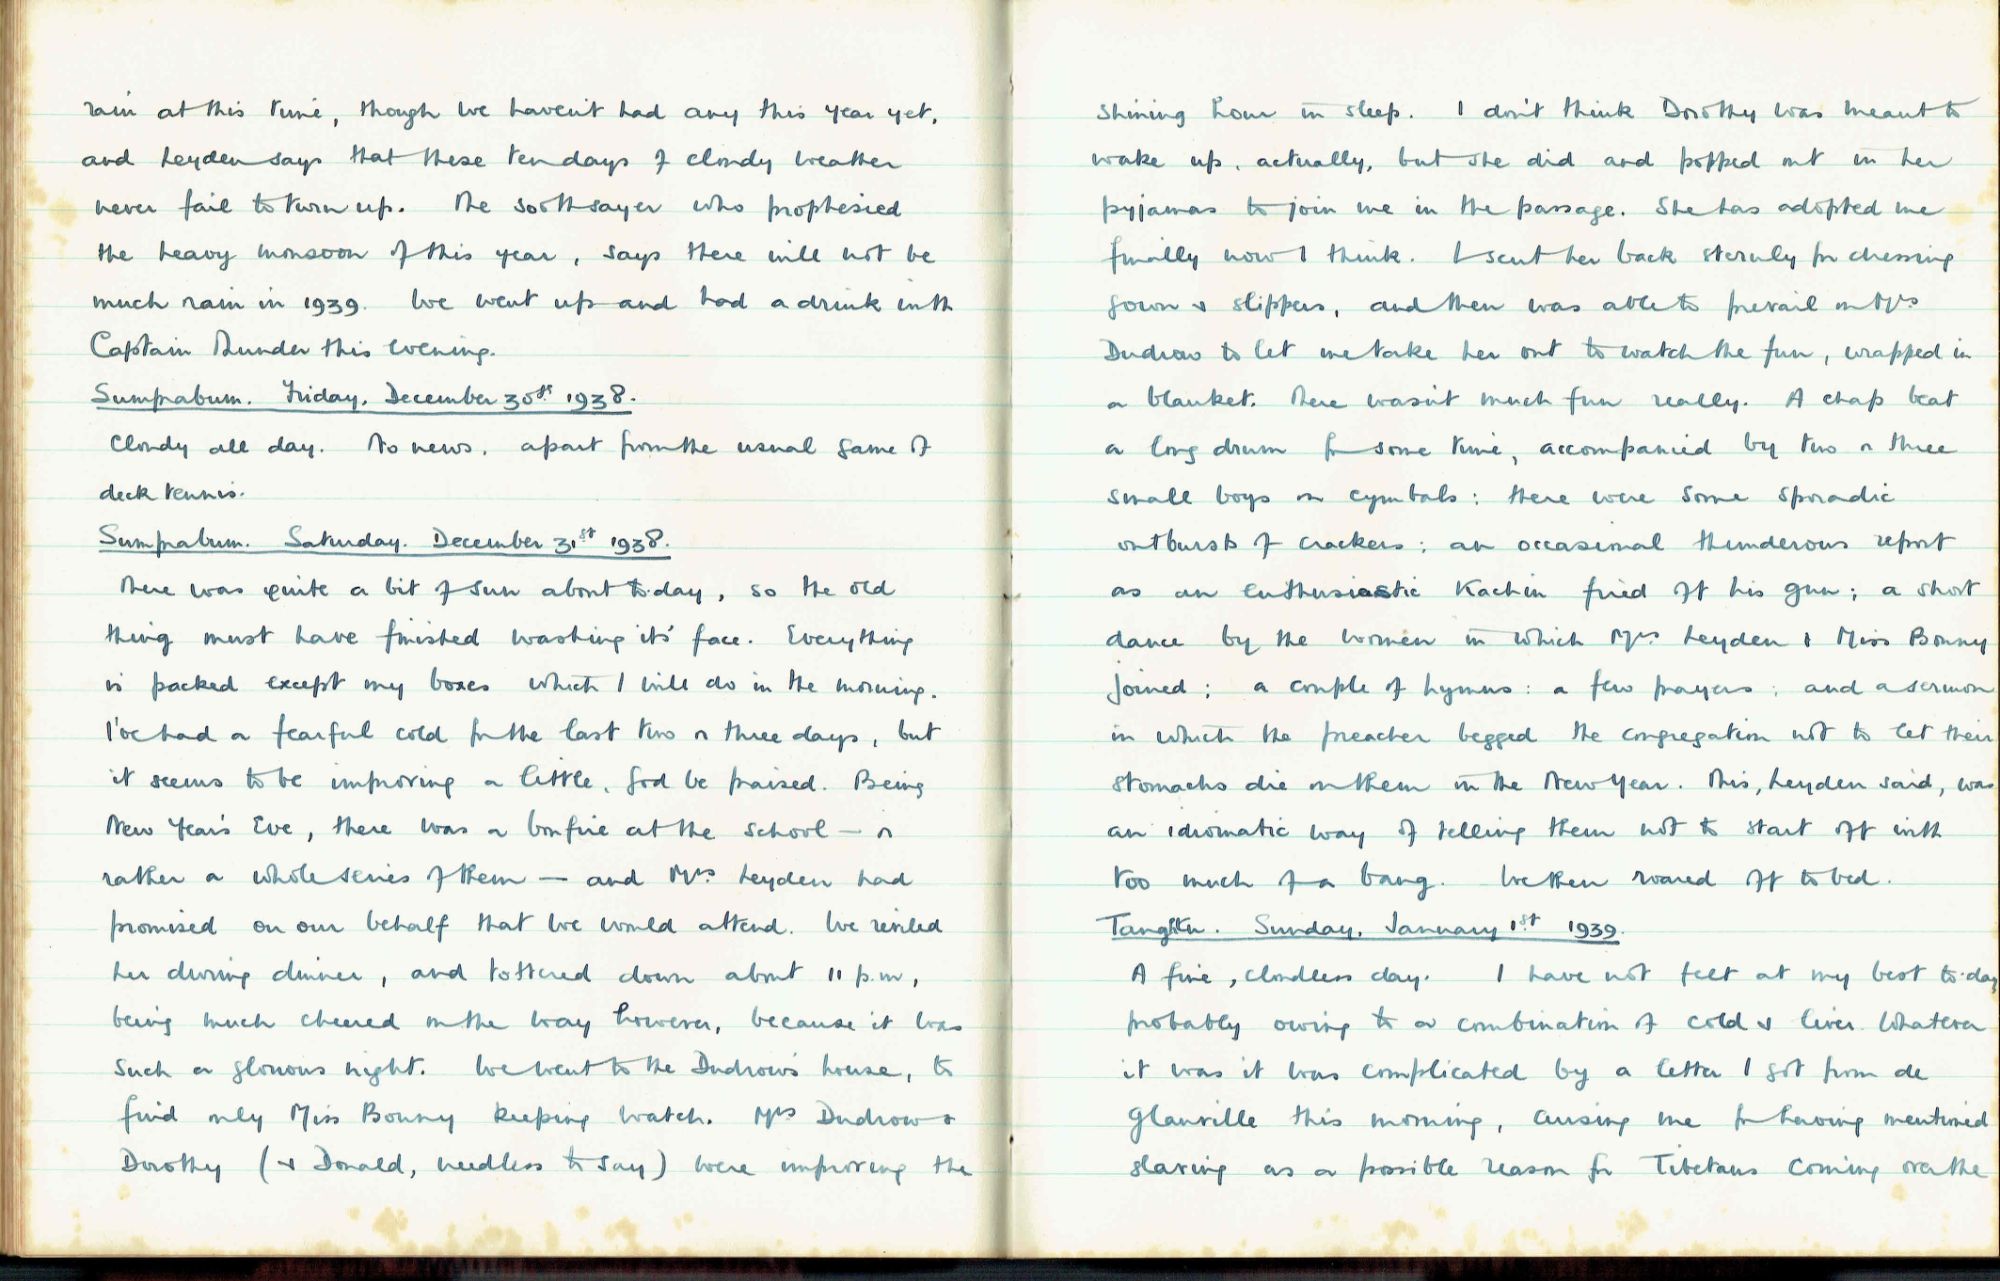 rain at this time, though we haven't had any this year yet,
and Leyden says that these ten days of cloudy weather
never fail to turn up. The soothsayer who prophesied
the heavy monsoon of this year, says there will not be
much rain in 1939. We went up and had a drink with
Captain Thunder this evening.
Sumprabum. Friday. December 30th 1938.
Cloudy all day. No news, apart from the usual game of
deck tennis.
Sumprabum. Saturday. December 31st 1938.
There was quite a bit of sun about to-day, so the old
thing must have finished washing it's face. Everything
is packed except my boxes which I will do in the morning.
I've had a fearful cold for the last two or three days, but
it seems to be improving a little, God be praised. Being
New Year's Eve, there was a bonfire at the school — or
rather a whole series of them — and Mrs Leyden had
promised on our behalf that we would attend. We reviled
her during dinner, and tottered down about 11 p.m,
being much cheered on the way however, because it was
such a glorious night. We went to the Dudrow's house, to
find only Miss Bonny keeping watch. Mrs Dudrow &
Dorothy (& Donald, needless to say) were improving the
shining hour in sleep. I don't think Dorothy was meant to
wake up, actually, but she did and popped out in her
pyjamas to join me in the passage. She has adopted me
finally now I think. I sent her back sternly for dressing
gown & slippers, and then was able to prevail on Mrs
Dudrow to let me take her out to watch the fun, wrapped in
a blanket. There wasn't much fun really. A chap beat
a long drum for some time, accompanied by two or three
small boys on cymbals: there were some sporadic
outbursts of crackers; an occasional thunderous report
as an enthusiastic Kachin fired off his gun; a short
dance by the women in which Mrs Leyden & Miss Bonny
joined; a couple of hymns: a few prayers; and a sermon
in which the preacher begged the congregation not to let their
stomachs die on them in the New Year. This, Leyden said, was
an idiomatic way of telling them not to start off with
too much of a bang. We then roared off to bed.
Tanghku. Sunday, January 1st 1939.
A fine, cloudless day. I have not felt at my best to-day
probably owing to a combination of cold & liver. Whatever
it was it was complicated by a letter I got from de
Glanville this morning, cursing me for having mentioned
slaving as a possible reason for Tibetans coming over the